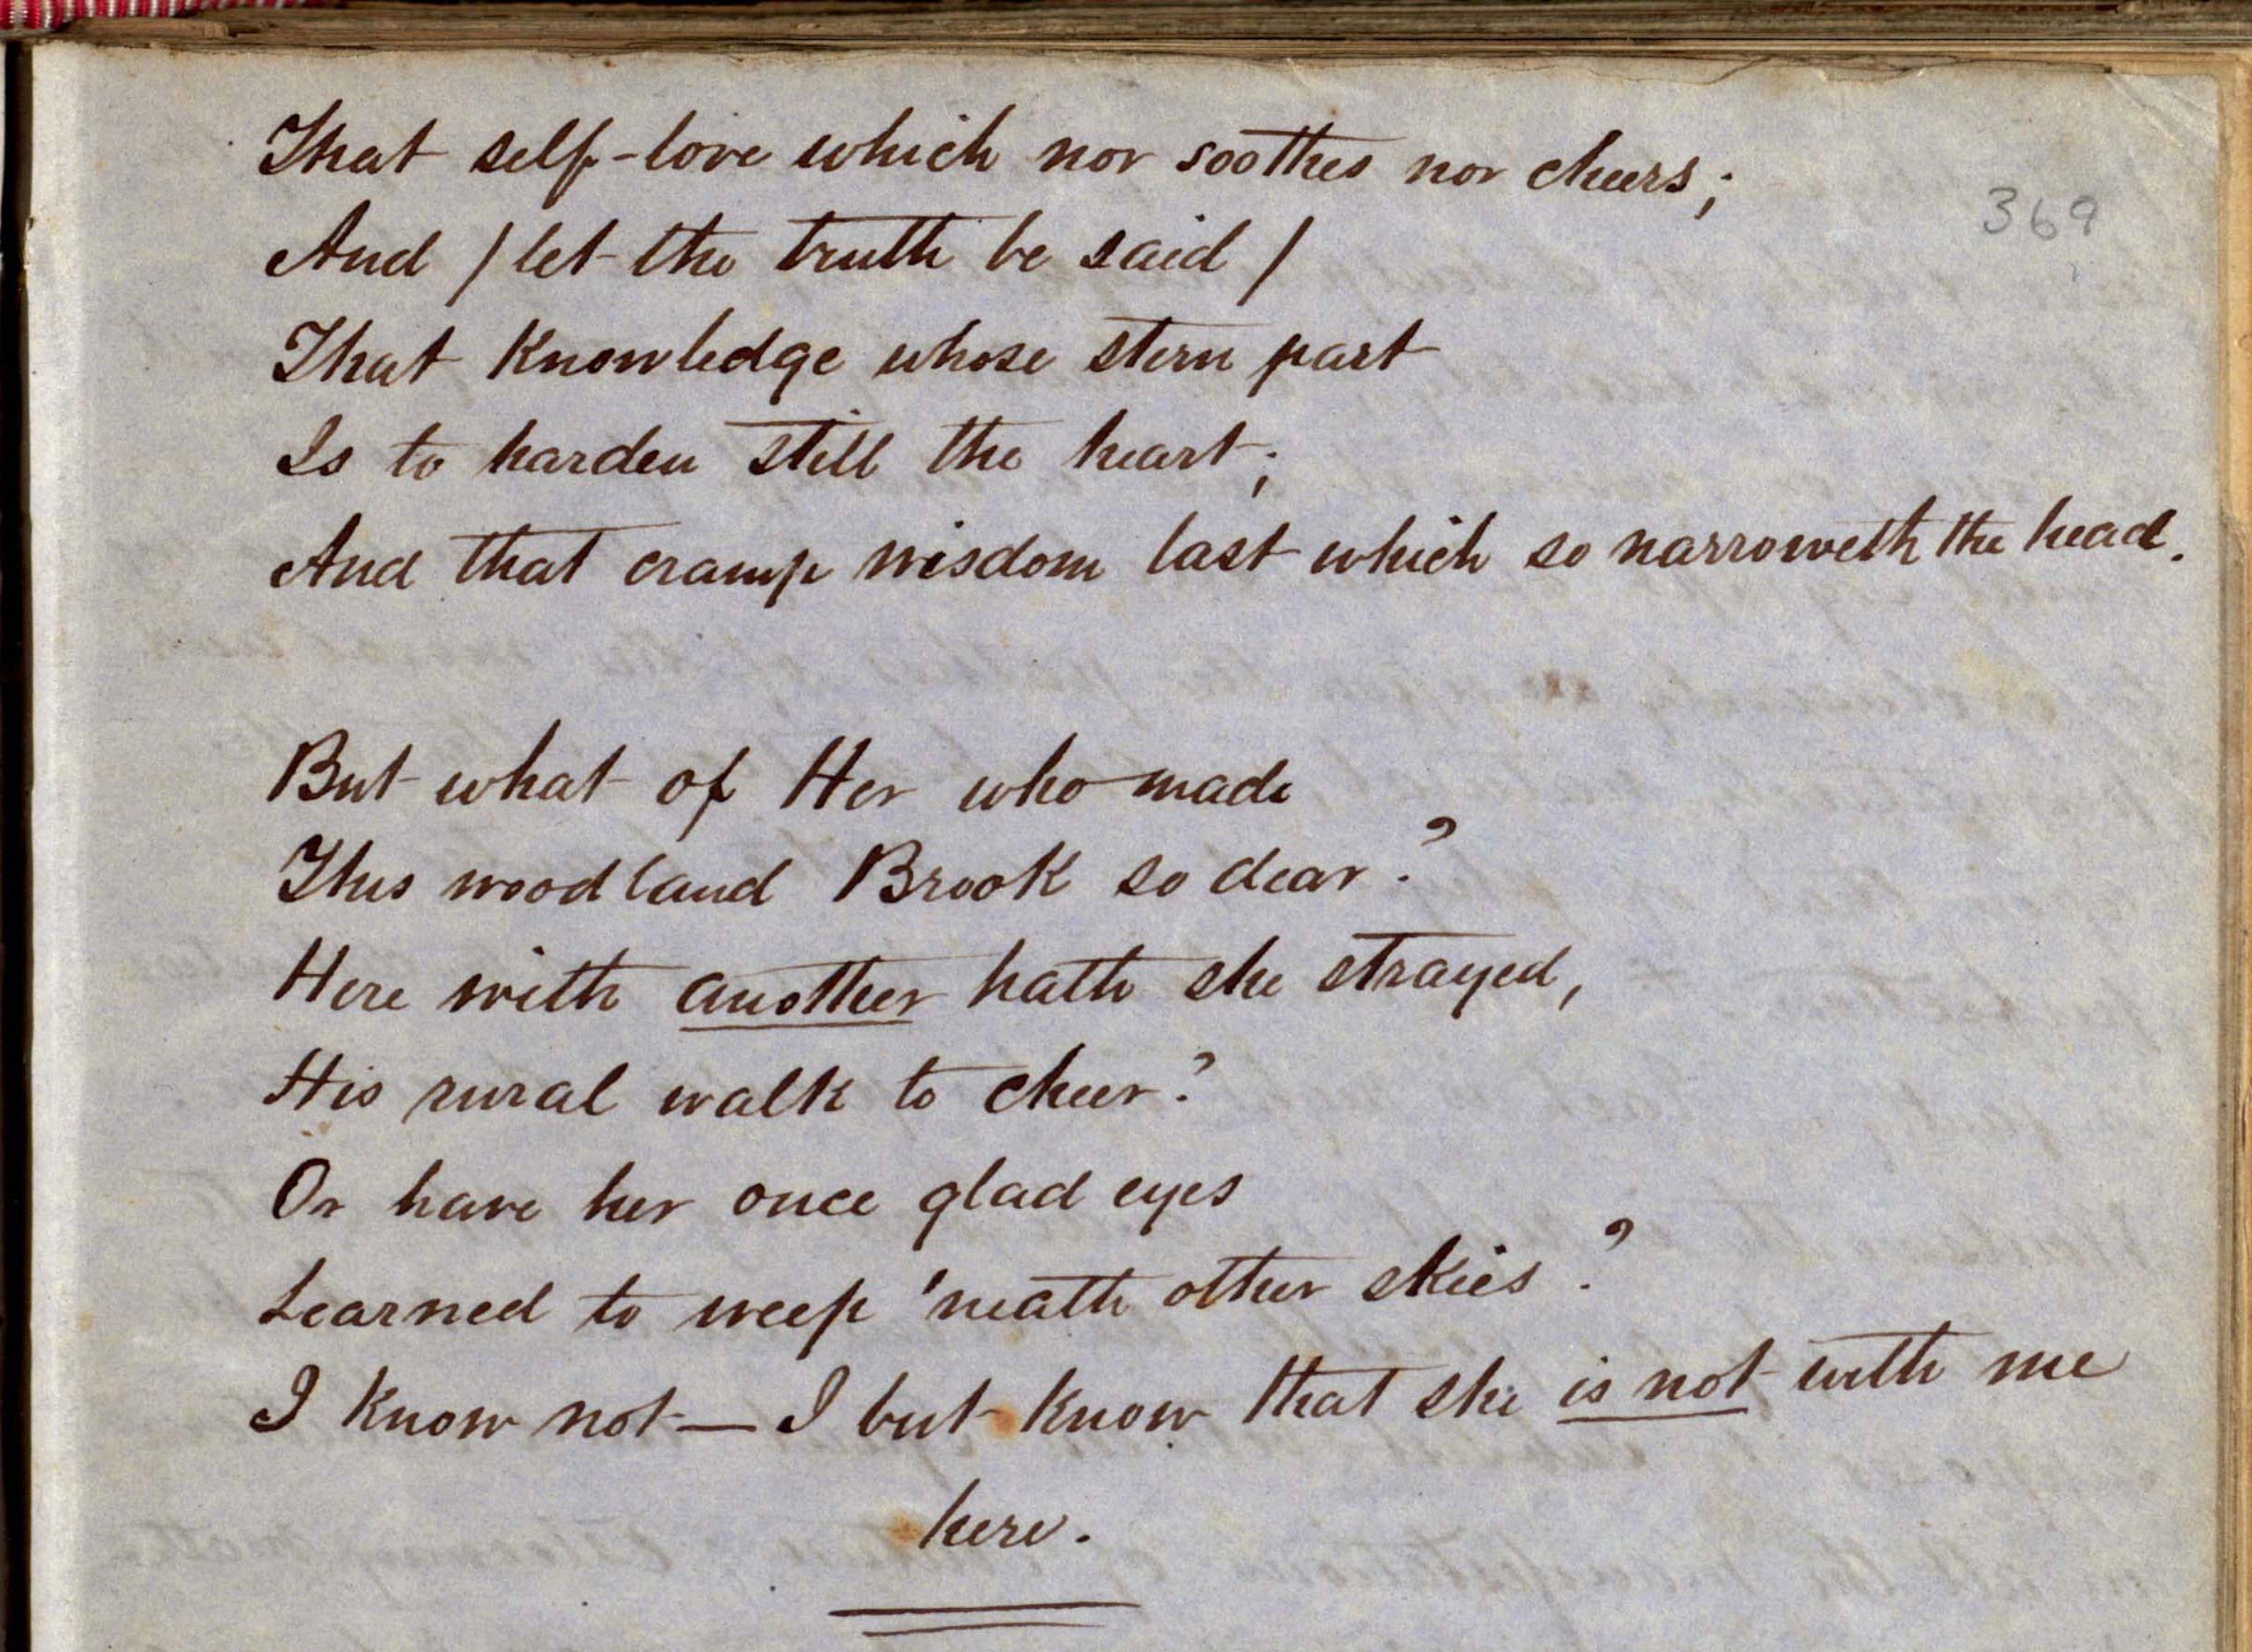 That self-love which nor soothes nor cheers;
369
And / let the truth be said /
That Knowledge whose stern part
Is to harden still the heart;
And that cramp wisdom last which so narroweth the head.
But what of Her who made
This woodland Brook so dear?
Here with another hath she strayed,
His rural walk to cheer?
Or have her once glad eyes
Learned to weep 'neath other skies?
I Know not — I but Know that she is not with me
here.